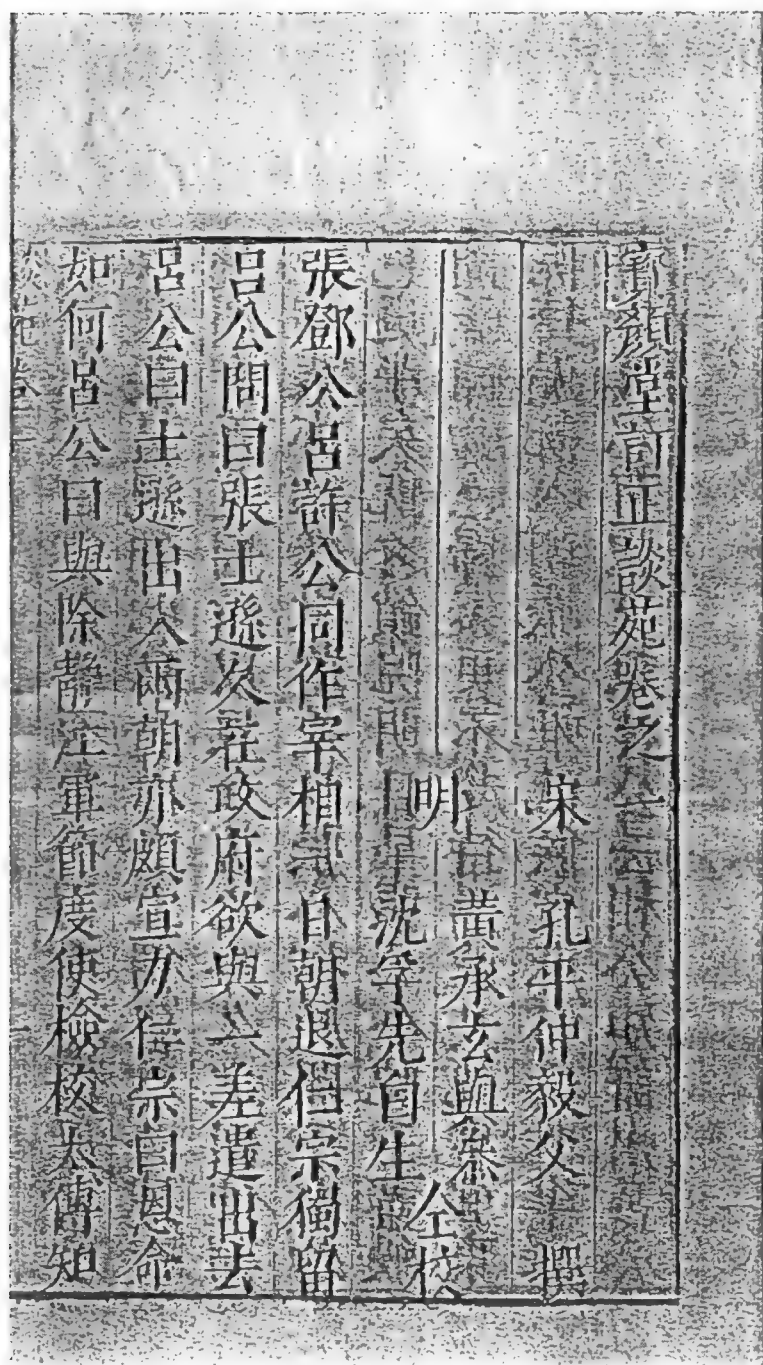 寶顏堂訂正談苑卷之一
宋 孔平仲毅父 撰
明 黃承玄與參 仝校
沈孚先白生
張鄧公呂許公同作宰相一日朝退仁宗獨留
呂公問曰張士遜久在政府欲與一差遣出去
呂公曰士遜出入兩朝亦頗宣力仁宗曰恩命
如何呂公曰與除靜江軍節度使檢校太傅知